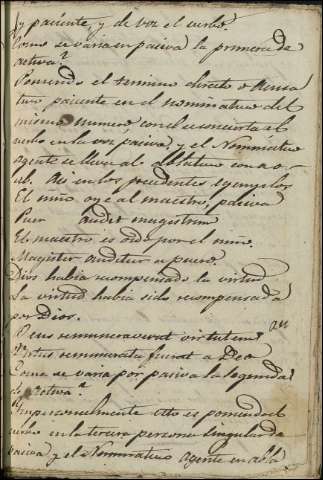 y paciente, y de voz el verbo.
Como se varia en pasiva la primera de
activa?
Poniendo el termino directo o Acusa
tivo paciente en el nominativo del
mismo numero con el concierta el
verbo en la voz pasiva, y el Nominativo
agente se lleva al ablativo con a o
ab. Asi en los precedentes egemplos
El niño oye al maestro,
Puer audit magistrum
El maestro es oido por el niño.
Magister auditur a puero.
Dios habia recompensado la virtud
La virtud habia sido recompensada
por Dios.
Deus remuneraverat virtutem
Virtus remunerata fuerat a Deo
Como se varia por pasiva la segunda
de activa?
Impersonalmente esto es poniendo el
verbo en la tercera persona singular de
pasiva y el Nominativo agente en abla